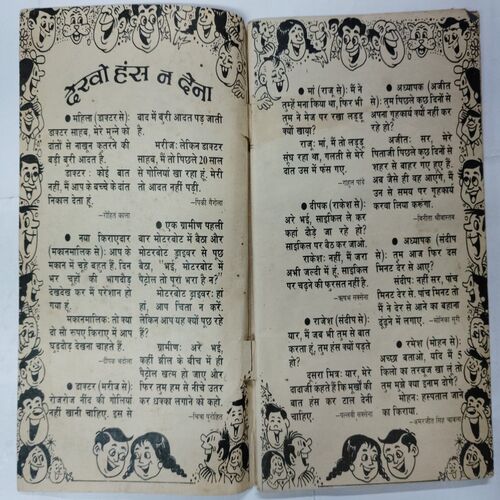 देखो हंस न देना
● महिला (डाक्टर से):
डाक्टर साहब, मेरे मुन्ने को
दांतों से नाखून कतरने की
बड़ी बुरी आदत है.
डाक्टर : कोई बात
नहीं, मैं आप के बच्चे के दांत
निकाल देता हूं.
–रोहित काला
● नया किराएदार
(मकानमालिक से): आप के
मकान में चूहे बहुत हैं. दिन
भर चूहों की भागदौड़
देखदेख कर मैं परेशान हो
गया हूं.
मकानमालिक: तो क्या
दो सौ रुपए किराए में आप
घुड़दौड़ देखना चाहते हैं.
–दीपक
● डाक्टर (मरीज से):
रोजरोज नींद की गोलियां
नहीं खानी चाहिए. इस से
बाद में बुरी आदत पड़ जाती
है.
मरीज: लेकिन डाक्टर
साहब, मैं तो पिछले 20 साल
से गोलियां खा रहा हूं. मेरी
तो आदत नहीं पड़ी.
–पिंकी
● एक ग्रामीण पहली
बार मोटरबोट में बैठा और
मोटरबोट ड्राइवर से पूछ
बैठा, "भई, मोटरबोट में
पेट्रोल तो पूरा भरा है न?
मोटरबोट ड्राइवर: हां
हां, आप चिंता न करें.
लेकिन आप यह क्यों पूछ रहे
हैं?
ग्रामीण: अरे भई,
कहीं झील के बीच में ही
पेट्रोल खत्म हो जाए और
फिर तुम हम से नीचे उतर
कर धक्का लगाने को कहो.
–चित्रा पुरोहित
● मां (राजू से): मैं ने
तुम्हें मना किया था, फिर भी
तुम ने मेज पर रखा लड्डू
क्यों खाया?
राजू: मां, मैं तो लड्डू
सूंघ रहा था, गलती से मेरे
दांत उस में फंस गए.
–राहुल पांडे
● दीपक (राकेश से):
अरे भई, साइकिल ले कर
कहां दौड़े जा रहे हो?
साइकिल पर बैठ कर जाओ.
राकेश: नहीं, मैं जरा
अभी जल्दी में हूं, साइकिल
पर चढ़ने की फुरसत नहीं है.
–ऋषभ सक्सेना
● राजेश (संदीप से):
यार, मैं जब भी तुम से बात
करता हूं, तुम हंस क्यों पड़ते
हो?
दूसरा मित्र: यार, मेरे
दादाजी कहते हैं कि मूर्खों की
बात हंस कर टाल देनी
चाहिए.
–पल्लवी सक्सेना
● अध्यापक (अजीत
से): तुम पिछले कुछ दिनों से
अपना गृहकार्य क्यों नहीं कर
रहे हो?
अजीत: सर, मेरे
पिताजी पिछले कुछ दिनों से
शहर से बाहर गए हुए हैं.
अब जैसे ही वह आएंगे, मैं
उन से समय पर गृहकार्य
करवा लिया करूंगा.
–विनीता श्रीवास्तव
● अध्यापक (संदीप
से): तुम आज फिर दस
मिनट देर से आए?
संदीप: नहीं सर, पांच
मिनट देर से. पांच मिनट तो
मैं ने देर से आने का बहाना
ढूंढ़ने में लगाए.
–मोनिका सूरी
● रमेश (मोहन से):
अच्छा बताओ, यदि मैं 1
किलो का तरबूज खा लूं तो
तुम मुझे क्या इनाम दोगे?
मोहन: हस्पताल जाने
का किराया.
–अमरजीत सिंह चावला